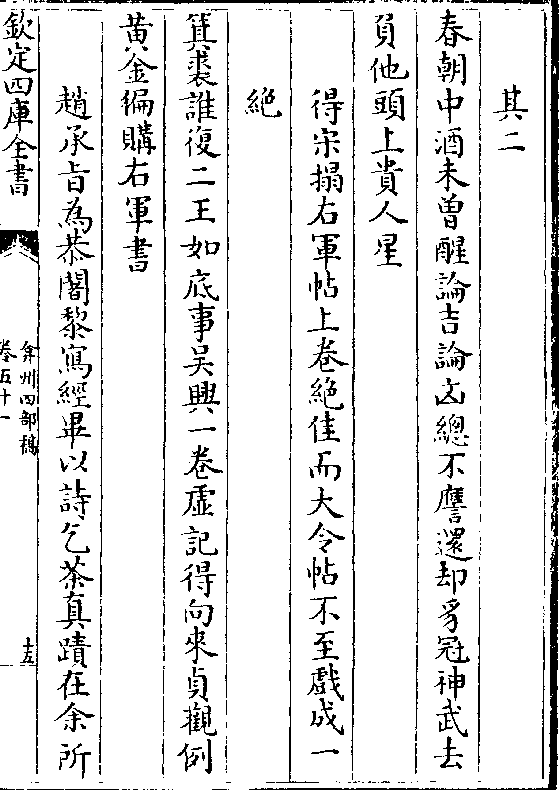 其二
春朝中酒未曾醒論吉論凶總不譍還却豸冠神武去
負他頭上貴人星
得宋搨右軍帖上卷絶佳而大令帖不至戲成一
絶
箕裘誰復二王如底事吳興一卷虛記得向來貞觀例
黄金徧購右軍書
趙承旨為恭闍黎寫經畢以詩乞茶真蹟在余所
欽定四庫全書
弇州四部稿
卷五十一
十五